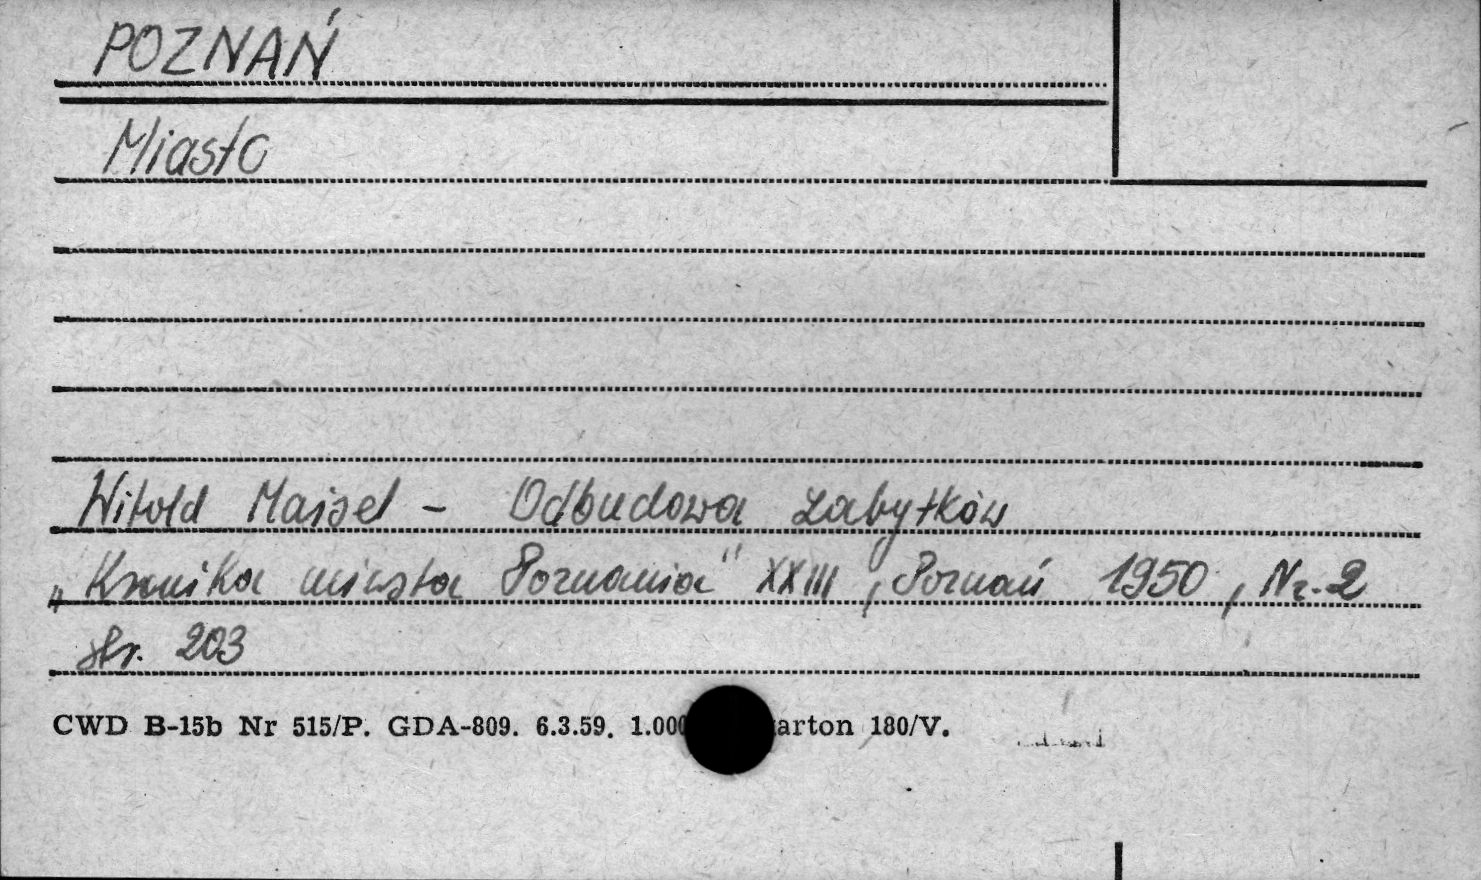 POZNAŃ
Miasto
Witold Maisel - Odbudowa zabytków
„Kronika miasta Poznania" XXIII, Poznań 1950, Nr. 2
str. 203
CWD B-15b Nr 515/P. GDA-809. 6.3.59. 1.000 arton 180/V.